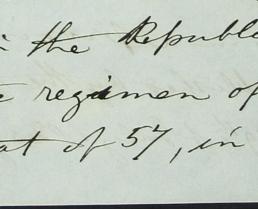 the Republ
regimen of
at of 57, in